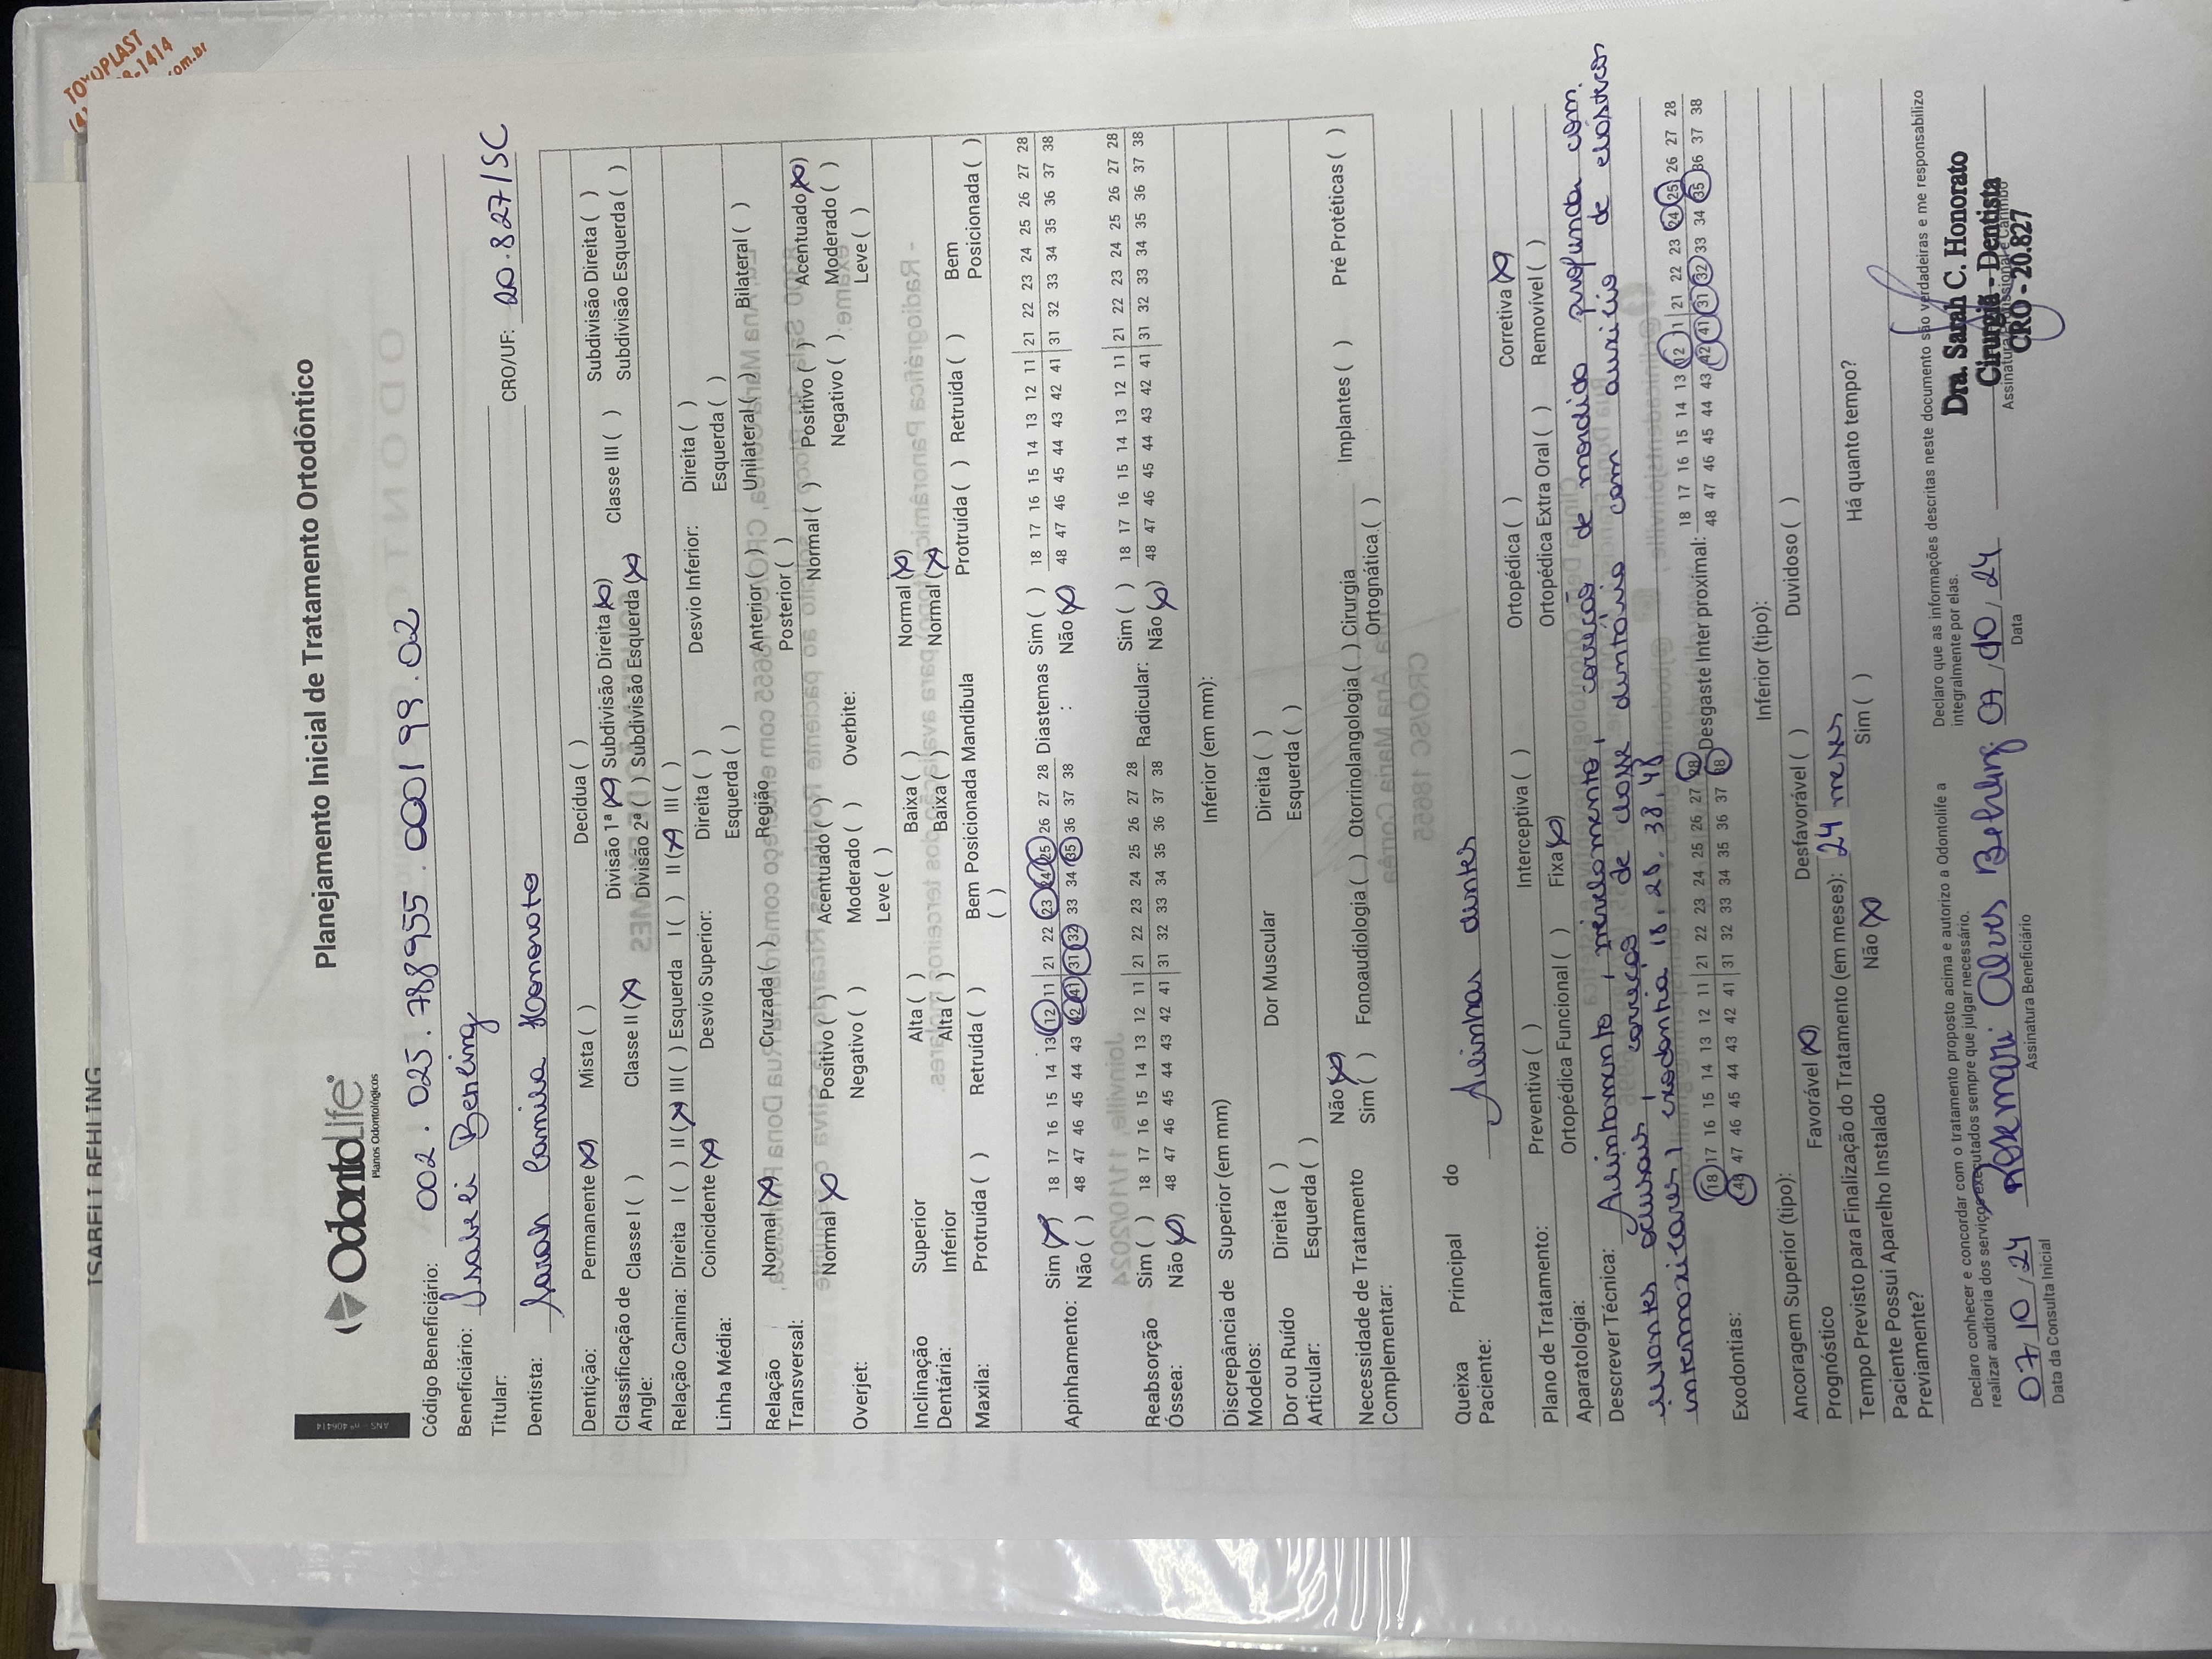 ISABELI BEHLING
TOYOPLAST
-1414
om.br
ANS - nº 406414
OdontoLife®
Planos Odontológicos
Planejamento Inicial de Tratamento Ortodôntico
Código Beneficiário: 002.025.788955.000199.02
Beneficiário: Isabeli Benling
Titular:
Dentista: Sarah Camila Honorato CRO/UF: 20.827/SC
Dentição: Permanente (X) Mista ( ) Decídua ( )
Classificação de Angle: Classe I ( ) Classe II (X) Divisão 1ª (X) Subdivisão Direita (X) Classe III ( ) Subdivisão Direita ( )
Divisão 2ª ( ) Subdivisão Esquerda (X) Subdivisão Esquerda ( )
Relação Canina: Direita I ( ) II (X) III ( ) Esquerda I ( ) II (X) III ( )
Linha Média: Coincidente (X) Desvio Superior: Direita ( ) Desvio Inferior: Direita ( )
Esquerda ( ) Esquerda ( )
Relação Transversal: Normal (X) Cruzada ( ) Região Anterior ( ) Unilateral ( ) Bilateral ( )
Posterior ( )
Overjet: Normal (X) Positivo ( ) Acentuado ( ) Overbite: Normal ( ) Positivo ( ) Acentuado (X)
Negativo ( ) Moderado ( ) Negativo ( ) Moderado ( )
Leve ( ) Leve ( )
Inclinação Dentária: Superior Alta ( ) Baixa ( ) Normal (X)
Inferior Alta ( ) Baixa ( ) Normal (X)
Maxila: Protruída ( ) Retruída ( ) Bem Posicionada ( ) Mandíbula Protruída ( ) Retruída ( ) Bem Posicionada ( )
Apinhamento: Sim (X) 18 17 16 15 14 13 12 11 | 21 22 23 24 25 26 27 28 Diastemas: Sim ( ) 18 17 16 15 14 13 12 11 | 21 22 23 24 25 26 27 28
Não ( ) 48 47 46 45 44 43 42 41 | 31 32 33 34 35 36 37 38 Não (X) 48 47 46 45 44 43 42 41 | 31 32 33 34 35 36 37 38
Reabsorção Óssea: Sim ( ) 18 17 16 15 14 13 12 11 | 21 22 23 24 25 26 27 28 Radicular: Sim ( ) 18 17 16 15 14 13 12 11 | 21 22 23 24 25 26 27 28
Não (X) 48 47 46 45 44 43 42 41 | 31 32 33 34 35 36 37 38 Não (X) 48 47 46 45 44 43 42 41 | 31 32 33 34 35 36 37 38
Discrepância de Modelos: Superior (em mm) Inferior (em mm):
Dor ou Ruído Articular: Direita ( ) Dor Muscular Direita ( )
Esquerda ( ) Esquerda ( )
Necessidade de Tratamento Complementar: Não (X)
Sim ( ) Fonoaudiologia ( ) Otorrinolangologia ( ) Cirurgia Ortognática ( ) Implantes ( ) Pré Protéticas ( )
Queixa Principal do Paciente: Alinhar dentes
Plano de Tratamento: Preventiva ( ) Interceptiva ( ) Ortopédica ( ) Corretiva (X)
Aparatologia: Ortopédica Funcional ( ) Fixa (X) Ortopédica Extra Oral ( ) Removível ( )
Descrever Técnica: Alinhamento, nivelamento, correção de mordida profunda com
levantes oclusais, correção de classe dentário com auxílio de elásticos
intermaxilares, exodontia 18, 28, 38, 48
Exodontias: 18 17 16 15 14 13 12 11 | 21 22 23 24 25 26 27 28 Desgaste Inter proximal: 18 17 16 15 14 13 12 11 | 21 22 23 24 25 26 27 28
48 47 46 45 44 43 42 41 | 31 32 33 34 35 36 37 38 48 47 46 45 44 43 42 41 | 31 32 33 34 35 36 37 38
Ancoragem Superior (tipo): Inferior (tipo):
Prognóstico Favorável (X) Desfavorável ( ) Duvidoso ( )
Tempo Previsto para Finalização do Tratamento (em meses): 24 meses
Paciente Possuí Aparelho Instalado Previamente? Não (X) Sim ( ) Há quanto tempo?
Declaro conhecer e concordar com o tratamento proposto acima e autorizo a Odontolife a
realizar auditoria dos serviços executados sempre que julgar necessário.
Declaro que as informações descritas neste documento são verdadeiras e me responsabilizo
integralmente por elas.
07/10/24 Rosemari Alves Behling 07/10/24
Data da Consulta Inicial Assinatura Beneficiário Data Assinatura Profissional e Carimbo
Dra. Sarah C. Honorato
Cirurgiã - Dentista
CRO - 20.827